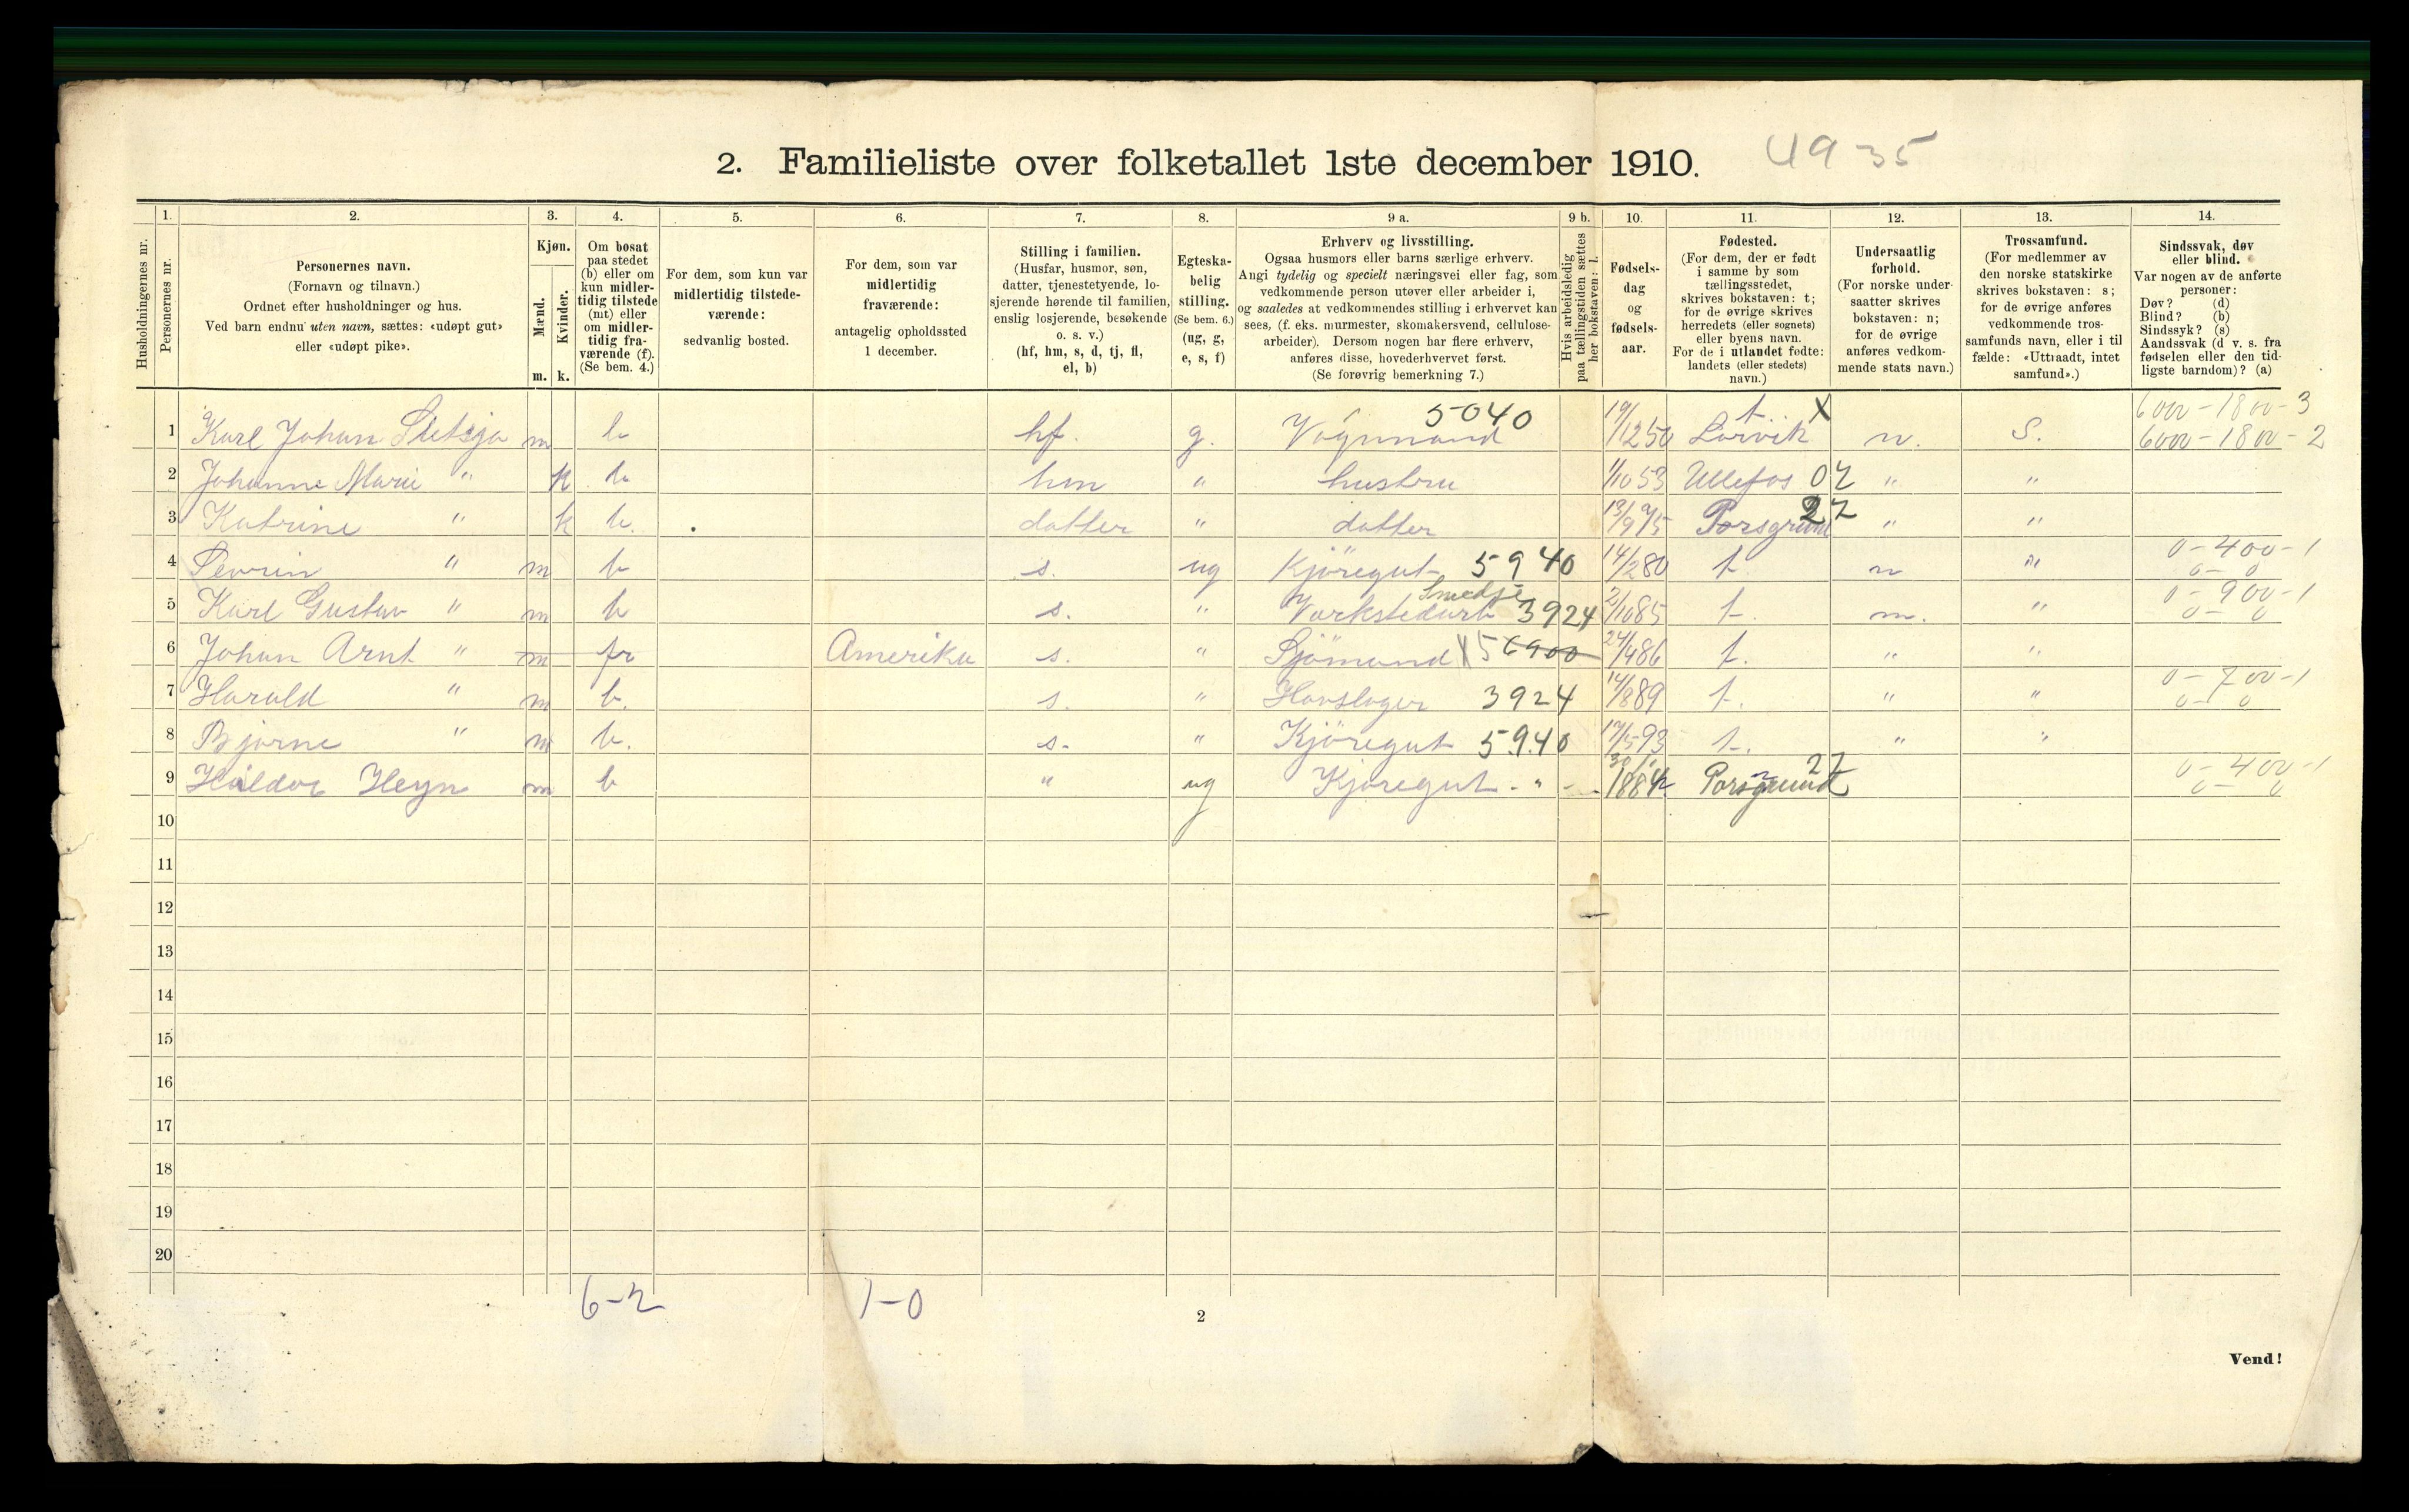 2. Familieliste over folketallet 1ste december 1910. 4935
1. 2. 3. 4. 5. 6. 7. 8. 9 a. 9 b. 10. 11. 12. 13. 14.
Husholdningernes nr.
Personernes nr.
Personernes navn.
(Fornavn og tilnavn.)
Ordnet efter husholdninger og hus.
Ved barn endnu uten navn, sættes: «udøpt gut»
eller «udøpt pike».
Kjøn.
Mænd.
Kvinder.
m. k.
Om bosat
paa stedet
(b) eller om
kun midler-
tidig tilstede
(mt) eller
om midler-
tidig fra-
værende (f).
(Se bem. 4.)
For dem, som kun var
midlertidig tilstede-
værende:
sedvanlig bosted.
For dem, som var
midlertidig
fraværende:
antagelig opholdssted
1 december.
Stilling i familien.
(Husfar, husmor, søn,
datter, tjenestetyende, lo-
sjerende hørende til familien,
enslig losjerende, besøkende
o. s. v.)
(hf, hm, s, d, tj, fl,
el, b)
Egteska-
belig
stilling.
(Se bem. 6.)
(ug, g,
e, s, f)
Erhverv og livsstilling.
Ogsaa husmors eller barns særlige erhverv.
Angi tydelig og specielt næringsvei eller fag, som
vedkommende person utøver eller arbeider i,
og saaledes at vedkommendes stilling i erhvervet kan
sees, (f. eks. murmester, skomakersvend, cellulose-
arbeider). Dersom nogen har flere erhverv,
anføres disse, hovederhvervet først.
(Se forøvrig bemerkning 7.)
Hvis arbeidsledig
paa tællingstiden sættes
her bokstaven: l.
Fødsels-
dag
og
fødsels-
aar.
Fødested.
(For dem, der er født
i samme by som
tællingsstedet,
skrives bokstaven: t;
for de øvrige skrives
herredets (eller sognets)
eller byens navn.
For de i utlandet fødte:
landets (eller stedets)
navn.)
Undersaatlig
forhold.
(For norske under-
saatter skrives
bokstaven: n;
for de øvrige
anføres vedkom-
mende stats navn.)
Trossamfund.
(For medlemmer av
den norske statskirke
skrives bokstaven: s;
for de øvrige anføres
vedkommende tros-
samfunds navn, eller i til
fælde: «Uttraadt, intet
samfund».)
Sindssvak, døv
eller blind.
Var nogen av de anførte
personer:
Døv? (d)
Blind? (b)
Sindssyk? (s)
Aandssvak (d v. s. fra
fødselen eller den tid-
ligste barndom)? (a)
5040 t X 6000-1800-3
1 Karl Johan m b hf. g. Vognmand 19/12 50 Larvik n. S. 6000-1800-2
2 Johanne Marie " k b hm " hustru 1/10 53 Ullefos 02 " "
3 Katrine " k b. datter " datter 13/9 75 Porsgrund 22 " "
4 Sevrin " m b s. ug Kjöregut 5940 14/2 80 t n " 0-400-1
0- 0
Smedje
5 Karl Gustav " m b s. " Verkstedarb 3924 2/10 85 t. n. " 0-900-1
0- 0
6 Johan Arnt " m fr Amerika s. " Sjömand 24/4 86 t. " "
7 Harald " m b. s. " Hovslager 3924 14/8 89 t. " " 0-700-1
0- 0
8 Bjarne " m b. s. " Kjöregut 5940 17/5 93 t. " "
9 Haldor Heyn m b " ug Kjöregut - " - 1884 Porsgrund 22 0-400-1
0- 0
10
11
12
13
14
15
16
17
18
19
20
6-2 1-0
2
Vend!